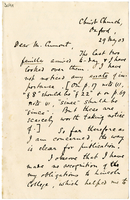 Christ Church,
Oxford,
29 May 03
Dear M. Cumont,
The last two
feuilles arrived to-day & I have
looked over them. I have
not noticed any errata of im-
portance. On p. 17 note
"should be"
note "since" should be
"since". But these are
scarcely worth taking notice
of.
So far therefore as
I am concerned, the way
is clear for publication.
I observe that I have
made no recognition of
my obligations to Lincoln
College, which helped me to